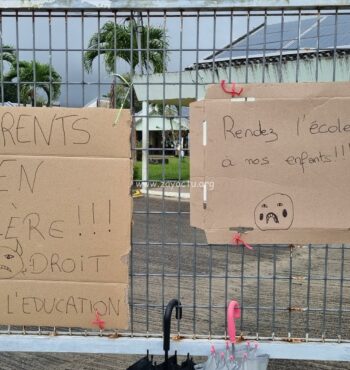 RENTS
EN
ERE!!!
DROIT
L'EDUCATION
Rendez l'école
à nos enfants!!!
www.zayactu.org